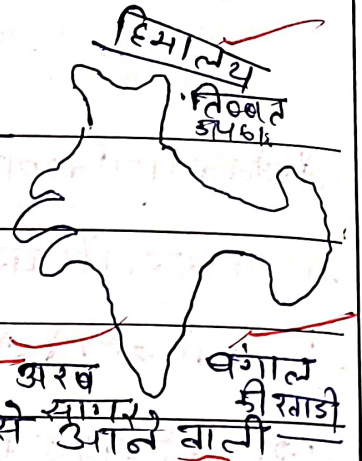 हिमालय
तिब्बत
अरब
सागर
बंगाल
की खाडी
से आने वाली